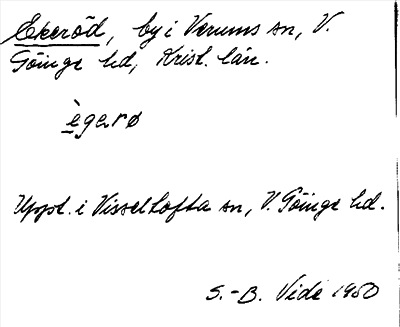 Ekeröd, by i Verums sn, V.
Göinge hd, Krist. län.
ègarø
Uppt. i Visseltofta sn, V. Göinge hd.
S.-B. Vide 1950